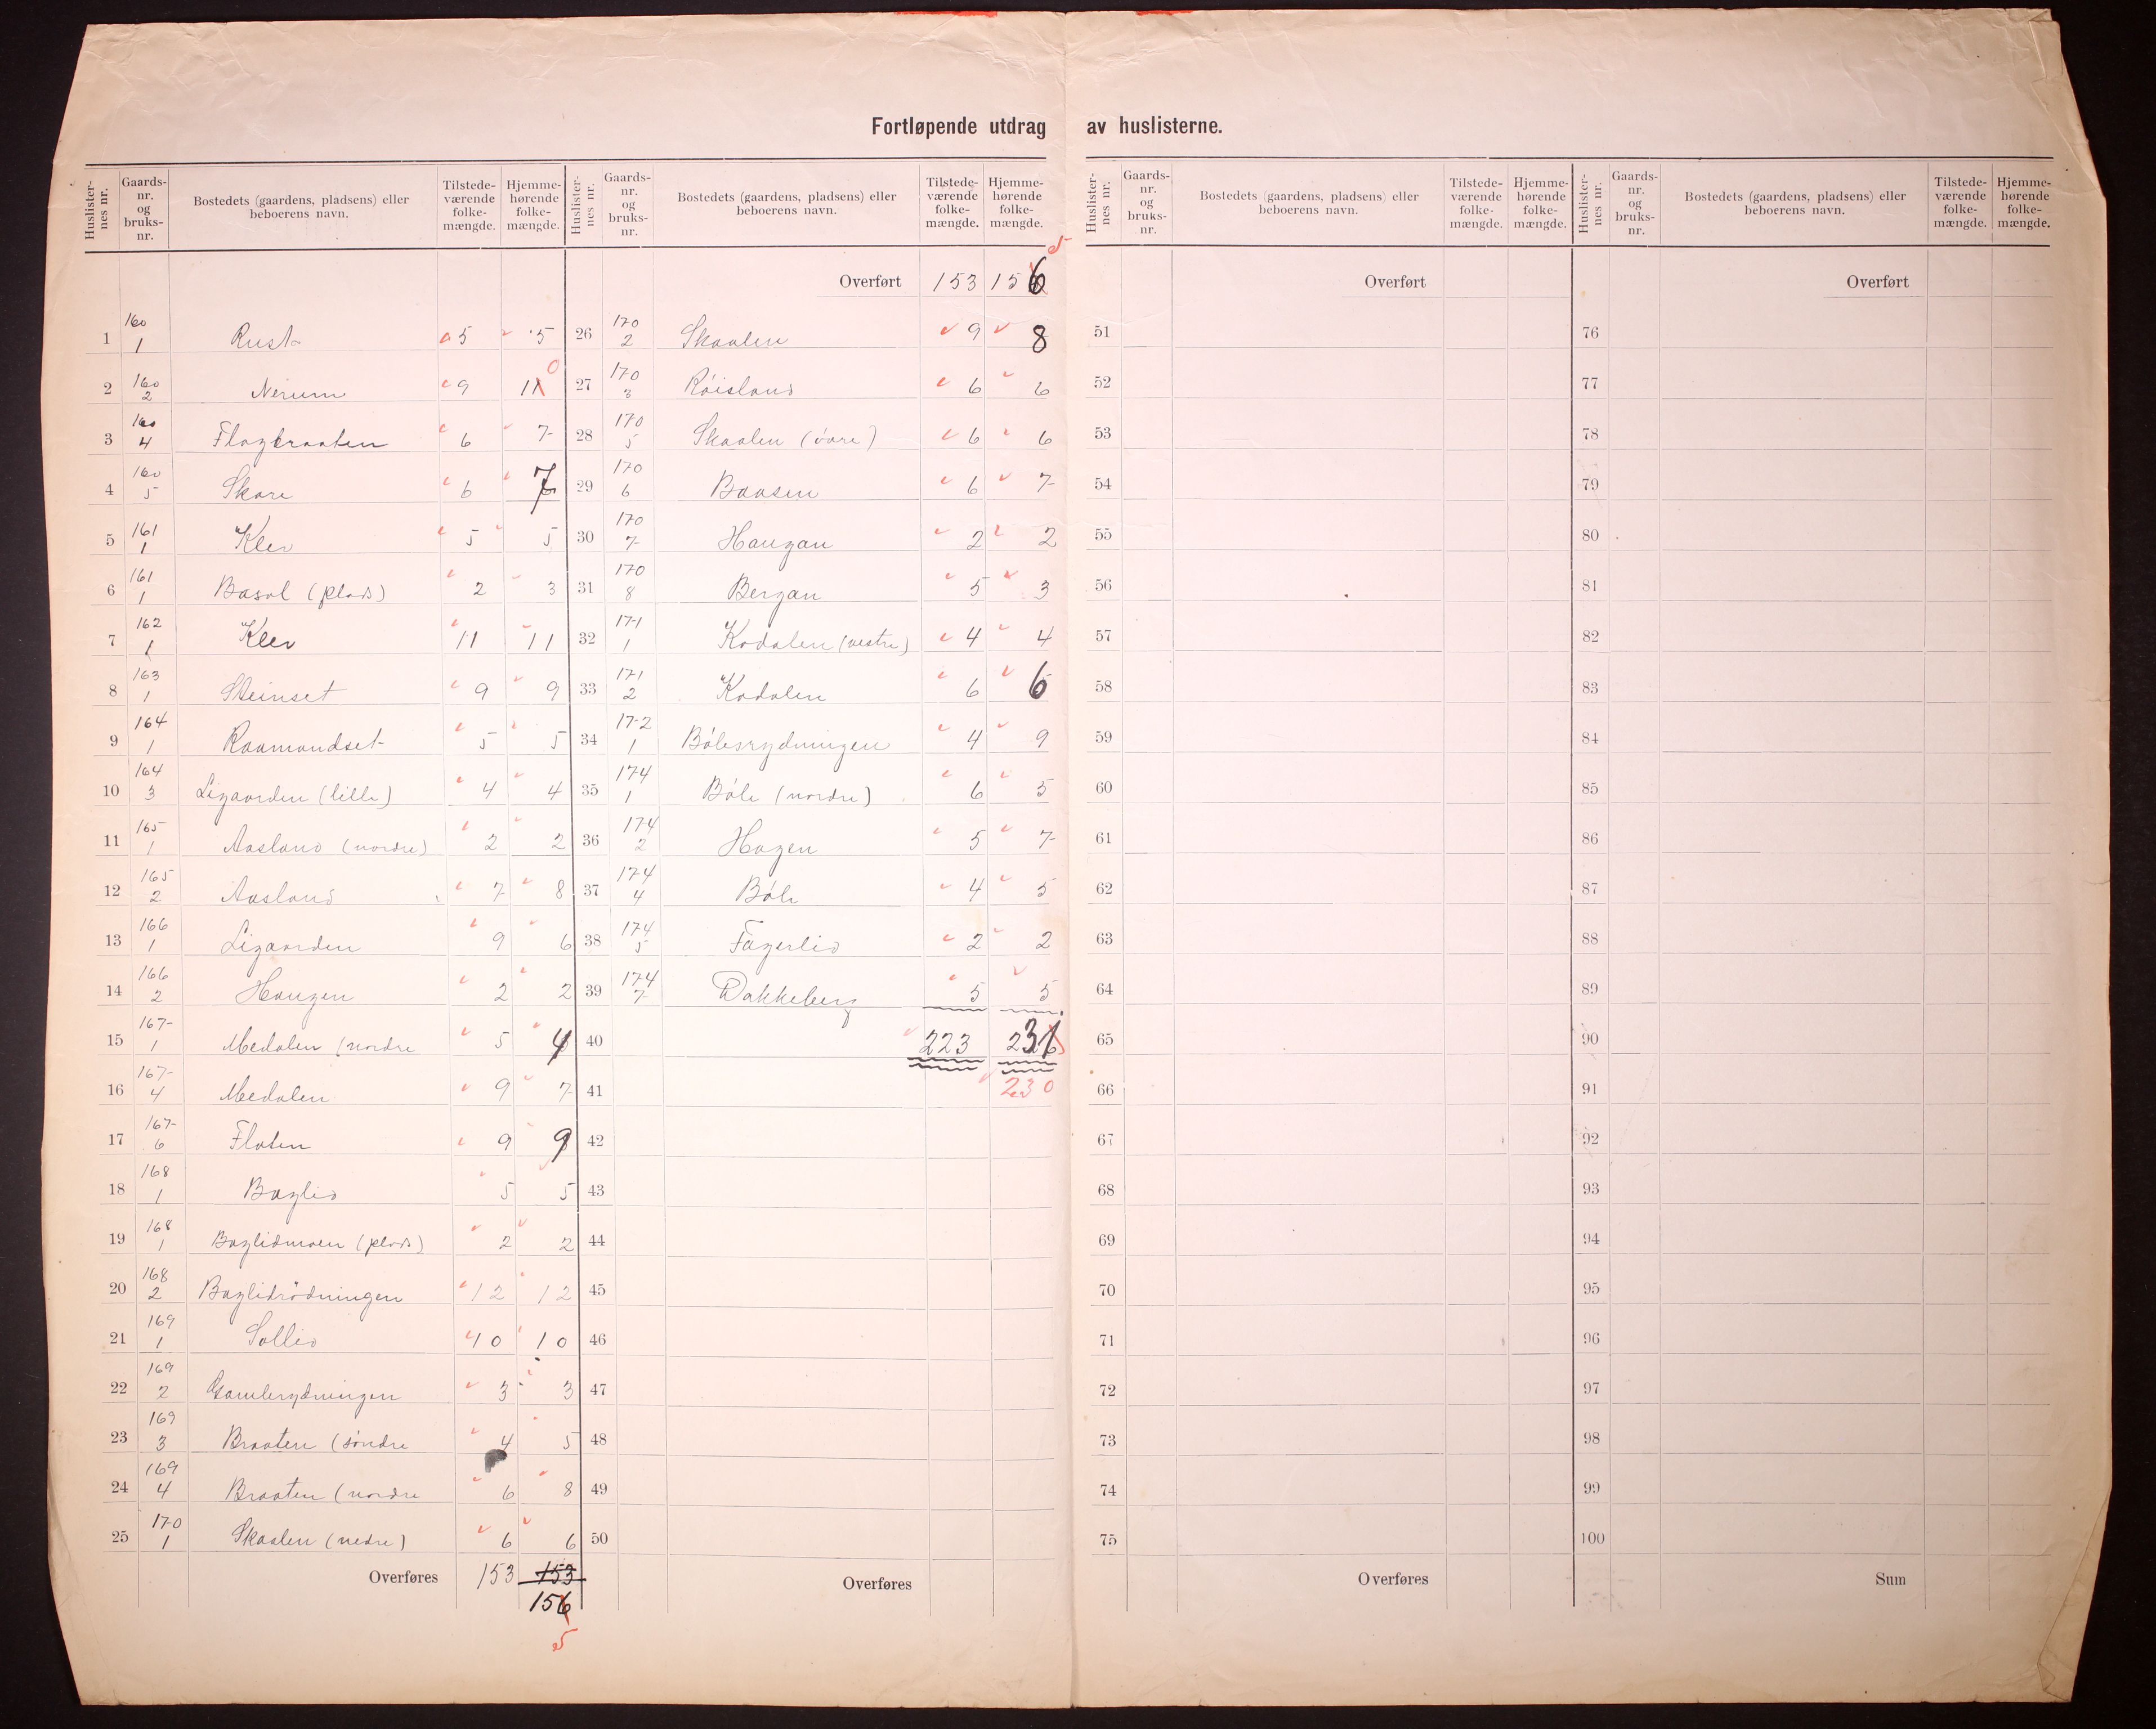 Fortløpende utdrag av huslisterne.
Huslisternes nr. Gaardsnr. og bruksnr. Bostedets (gaardens, pladsens) eller beboerens navn. Tilstedeværende folkemængde. Hjemmehørende folkemængde.
1 160 1 Rust 5 5
2 160 2 Nerum 9 11 0
3 160 4 Flagbraaten 6 7
4 160 5 Skare 6 7
5 161 1 Klev 5 5
6 161 1 Basol (plads) 2 3
7 162 1 Klev 11 11
8 163 1 Steinset 9 9
9 164 1 Raamundset 5 5
10 164 3 Ligaarden (lille) 4 4
11 165 1 Aasland (nordre) 2 2
12 165 2 Aasland 7 8
13 166 1 Ligaarden 9 6
14 166 2 Haugen 2 2
15 167 1 Medalen (nordre 5 4
16 167 4 Medalen 9 7
17 167 6 Flaten 9 9
18 168 1 Baglid 5 5
19 168 1 Baglidmoen (plads) 2 2
20 168 2 Baglidrødningen 12 12
21 169 1 Sollid 10 10
22 169 2 Gamlerydningen 3 3
23 169 3 Braaten (søndre 4 5
24 169 4 Braaten (nordre 6 8
25 170 1 Skaalen (nedre) 6 6
Overføres 153 153
156
5
Huslisternes nr. Gaardsnr. og bruksnr. Bostedets (gaardens, pladsens) eller beboerens navn. Tilstedeværende folkemængde. Hjemmehørende folkemængde.
5
Overført 153 156
26 170 2 Skaalen 9 8
27 170 3 Røisland 6 6
28 170 5 Skaalen (øvre) 6 6
29 170 6 Baasen 6 7
30 170 7 Haugan 2 2
31 170 8 Bergan 5 3
32 171 1 Kodalen (vestre) 4 4
33 171 2 Kodalen 6 6
34 172 1 Bølesrydningen 4 9
35 174 1 Bøle (nordre) 6 5
36 174 2 Hagen 5 7
37 174 4 Bøle 4 5
38 174 5 Fagerlid 2 2
39 174 7 Dakkeberg 5 5
40 223 231
41 230
42
43
44
45
46
47
48
49
50
Overføres
Huslisternes nr. Gaardsnr. og bruksnr. Bostedets (gaardens, pladsens) eller beboerens navn. Tilstedeværende folkemængde. Hjemmehørende folkemængde.
Overført
51
52
53
54
55
56
57
58
59
60
61
62
63
64
65
66
67
68
69
70
71
72
73
74
75
Overføres
Huslisternes nr. Gaardsnr. og bruksnr. Bostedets (gaardens, pladsens) eller beboerens navn. Tilstedeværende folkemængde. Hjemmehørende folkemængde.
Overført
76
77
78
79
80
81
82
83
84
85
86
87
88
89
90
91
92
93
94
95
96
97
98
99
100
Sum